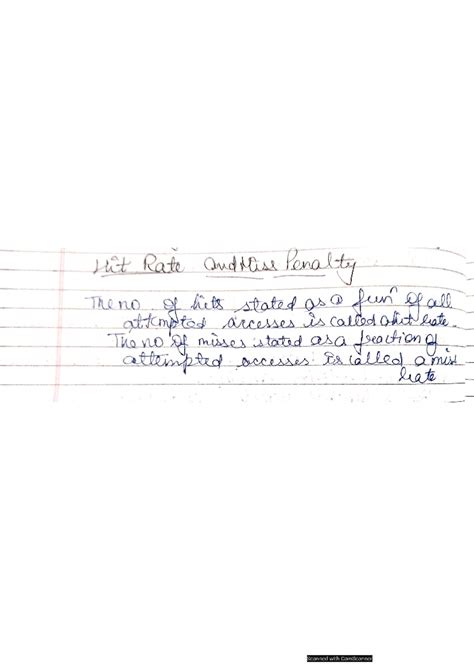 Hit Rate and Miss Penalty
The no. of hits stated as a funⁿ of all
attempted accesses is called a hit rate.
The no of misses stated as a fraction of
attempted accesses is called a miss
rate
Scanned with CamScanner